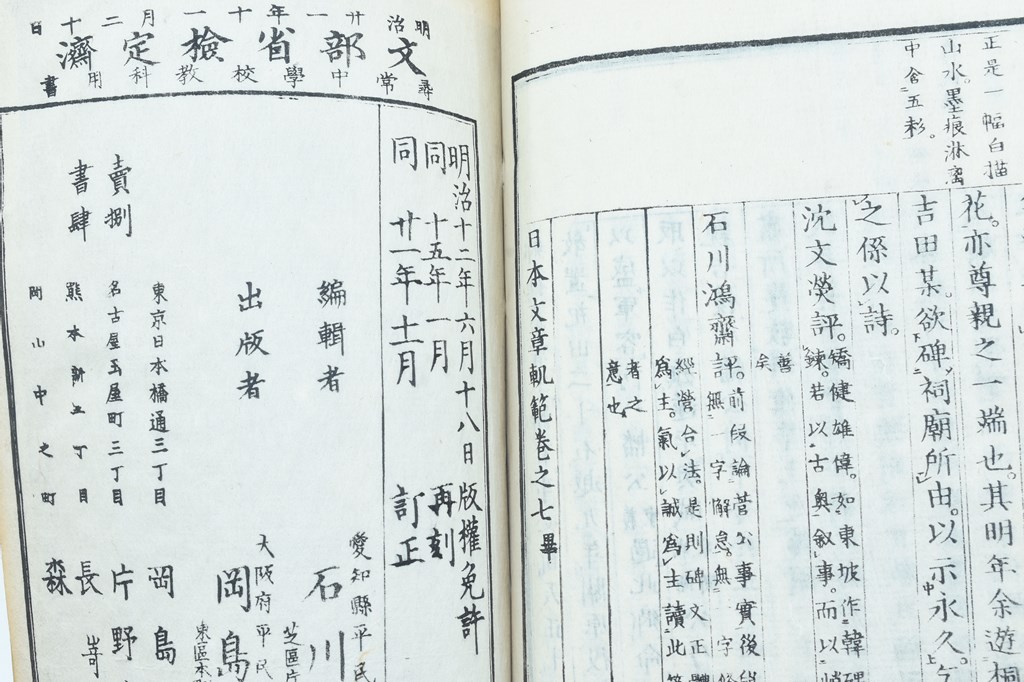 正是一幅白描
山水。墨痕淋漓
中含五彩。
花。亦尊親之一端也。其明年余遊桐
吉田某。欲碑祠廟所由。以示永久。
之係以詩。
沈文熒評。矯健雄偉。如東坡作韓碑
鍊。若以古奥敘事。而以
善
矣
石川鴻齋評。前段論菅公事實後段
無一字解怠。無一字
經營合法。是則碑文正體
爲主。氣以誠爲主讀此
者之
意也
日本文章軌範卷之七畢
明治廿一年十一月二十日
文部省檢定濟
尋常中學校教科用書
明治十二年六月十八日版權免許
同十五年一月再刻
同廿一年十一月訂正
編輯者
愛知縣平民
石川
芝區
出版者
大阪府平民
岡島
東區本
賣捌
書肆
東京日本橋通三丁目
岡島
名古屋玉屋町三丁目
片野
熊本新三丁目
長﨑
岡山中之町
森